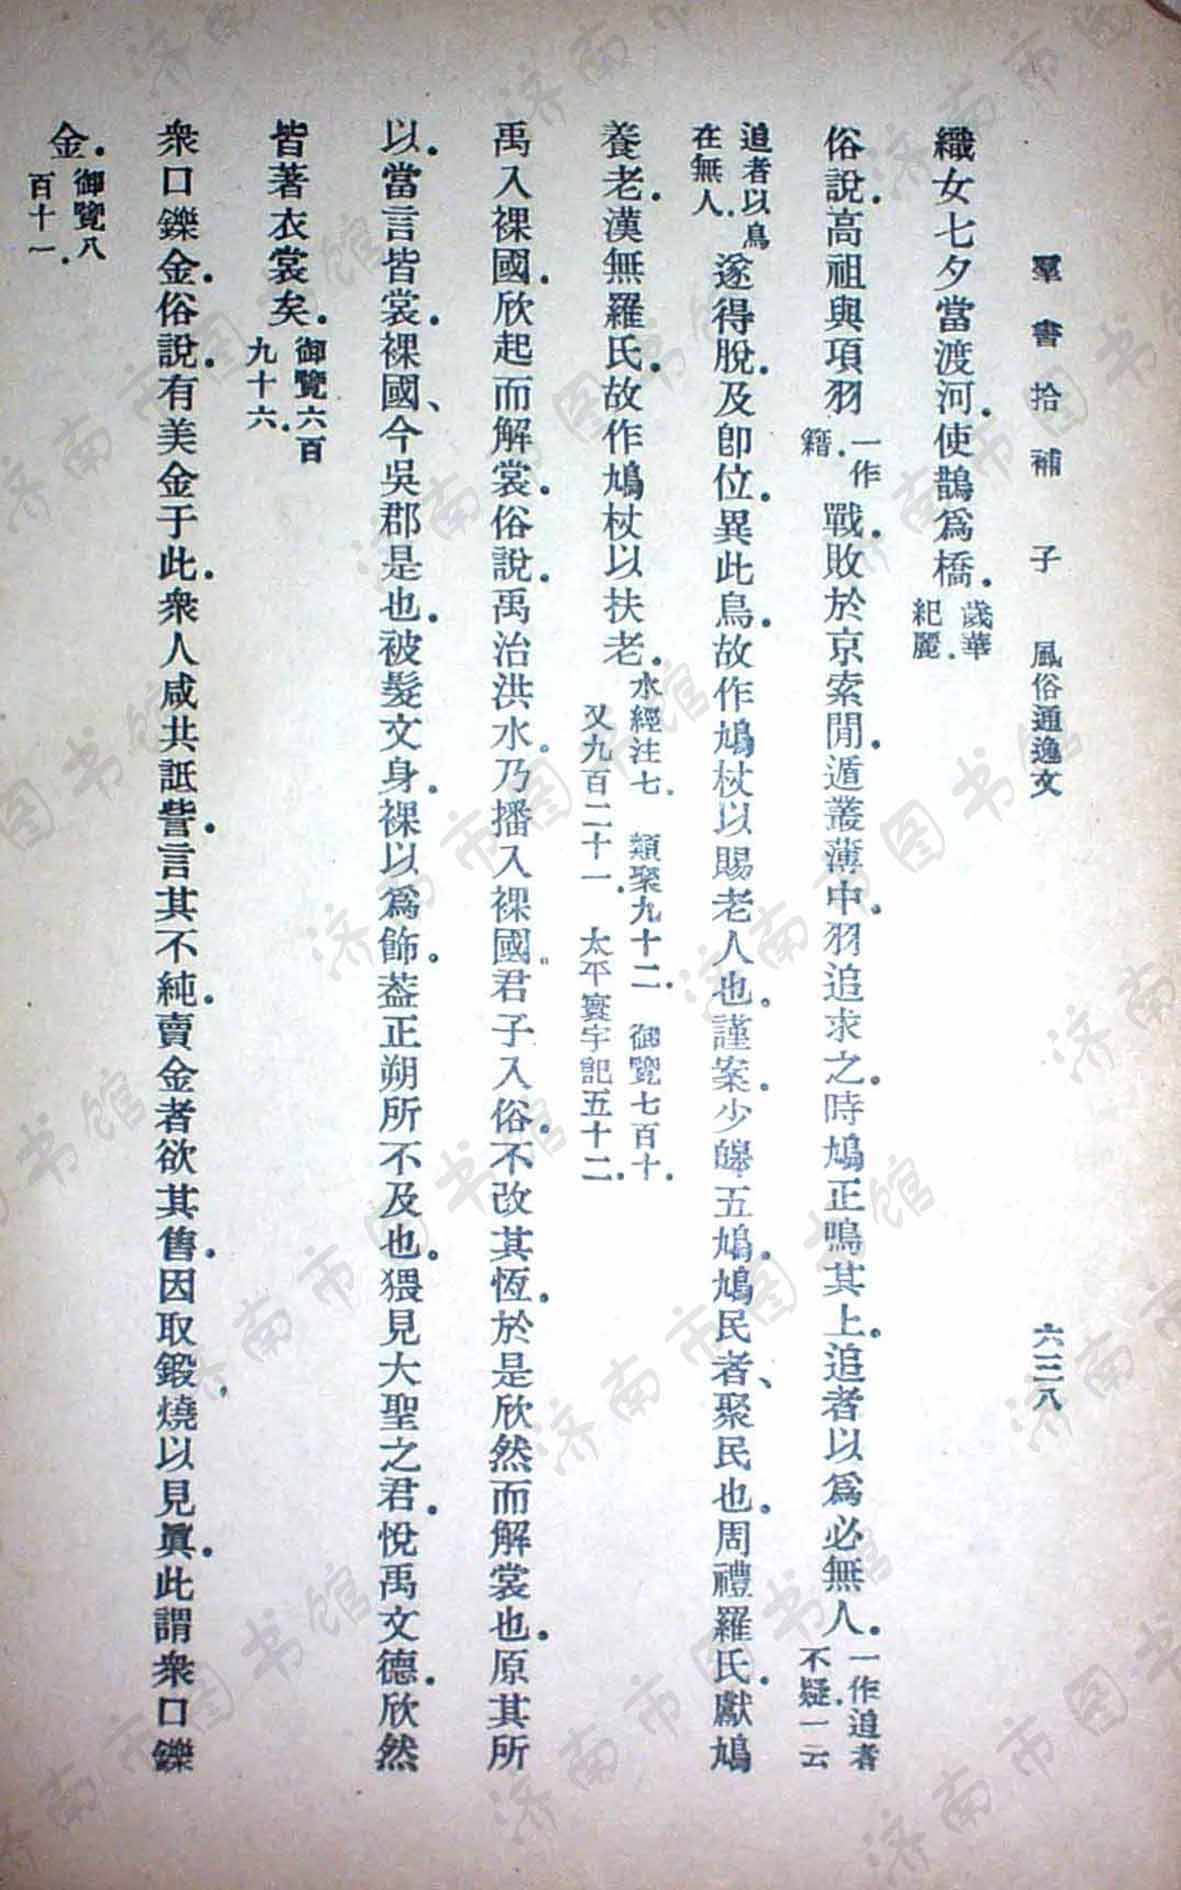 羣書拾補 子 風俗通逸文 六三八
織女七夕當渡河.使鵲爲橋.歲華紀麗.
俗說.高祖與項羽一作籍.戰.敗於京索閒.遁叢薄中.羽追求之.時鳩正鳴其上.追者以爲必無人.一作追者不疑.一云
追者以鳥在無人.遂得脫.及卽位.異此鳥.故作鳩杖以賜老人也.謹案.少皞五鳩.鳩民者、聚民也.周禮羅氏.獻鳩
養老.漢無羅氏.故作鳩杖以扶老.水經注七.類聚九十二.御覽七百十.又九百二十一.太平寰宇記五十二.
禹入裸國.欣起而解裳.俗說.禹治洪水.乃播入裸國.君子入俗.不改其恆.於是欣然而解裳也.原其所
以.當言皆裳.裸國、今吳郡是也.被髮文身.裸以爲飾.葢正朔所不及也.猥見大聖之君.悅禹文德.欣然
皆著衣裳矣.御覽六百九十六.
衆口鑠金.俗說.有美金于此.衆人咸共詆訾.言其不純.賣金者欲其售.因取鍛燒以見眞.此謂衆口鑠
金.御覽八百十一.
济南市图书馆